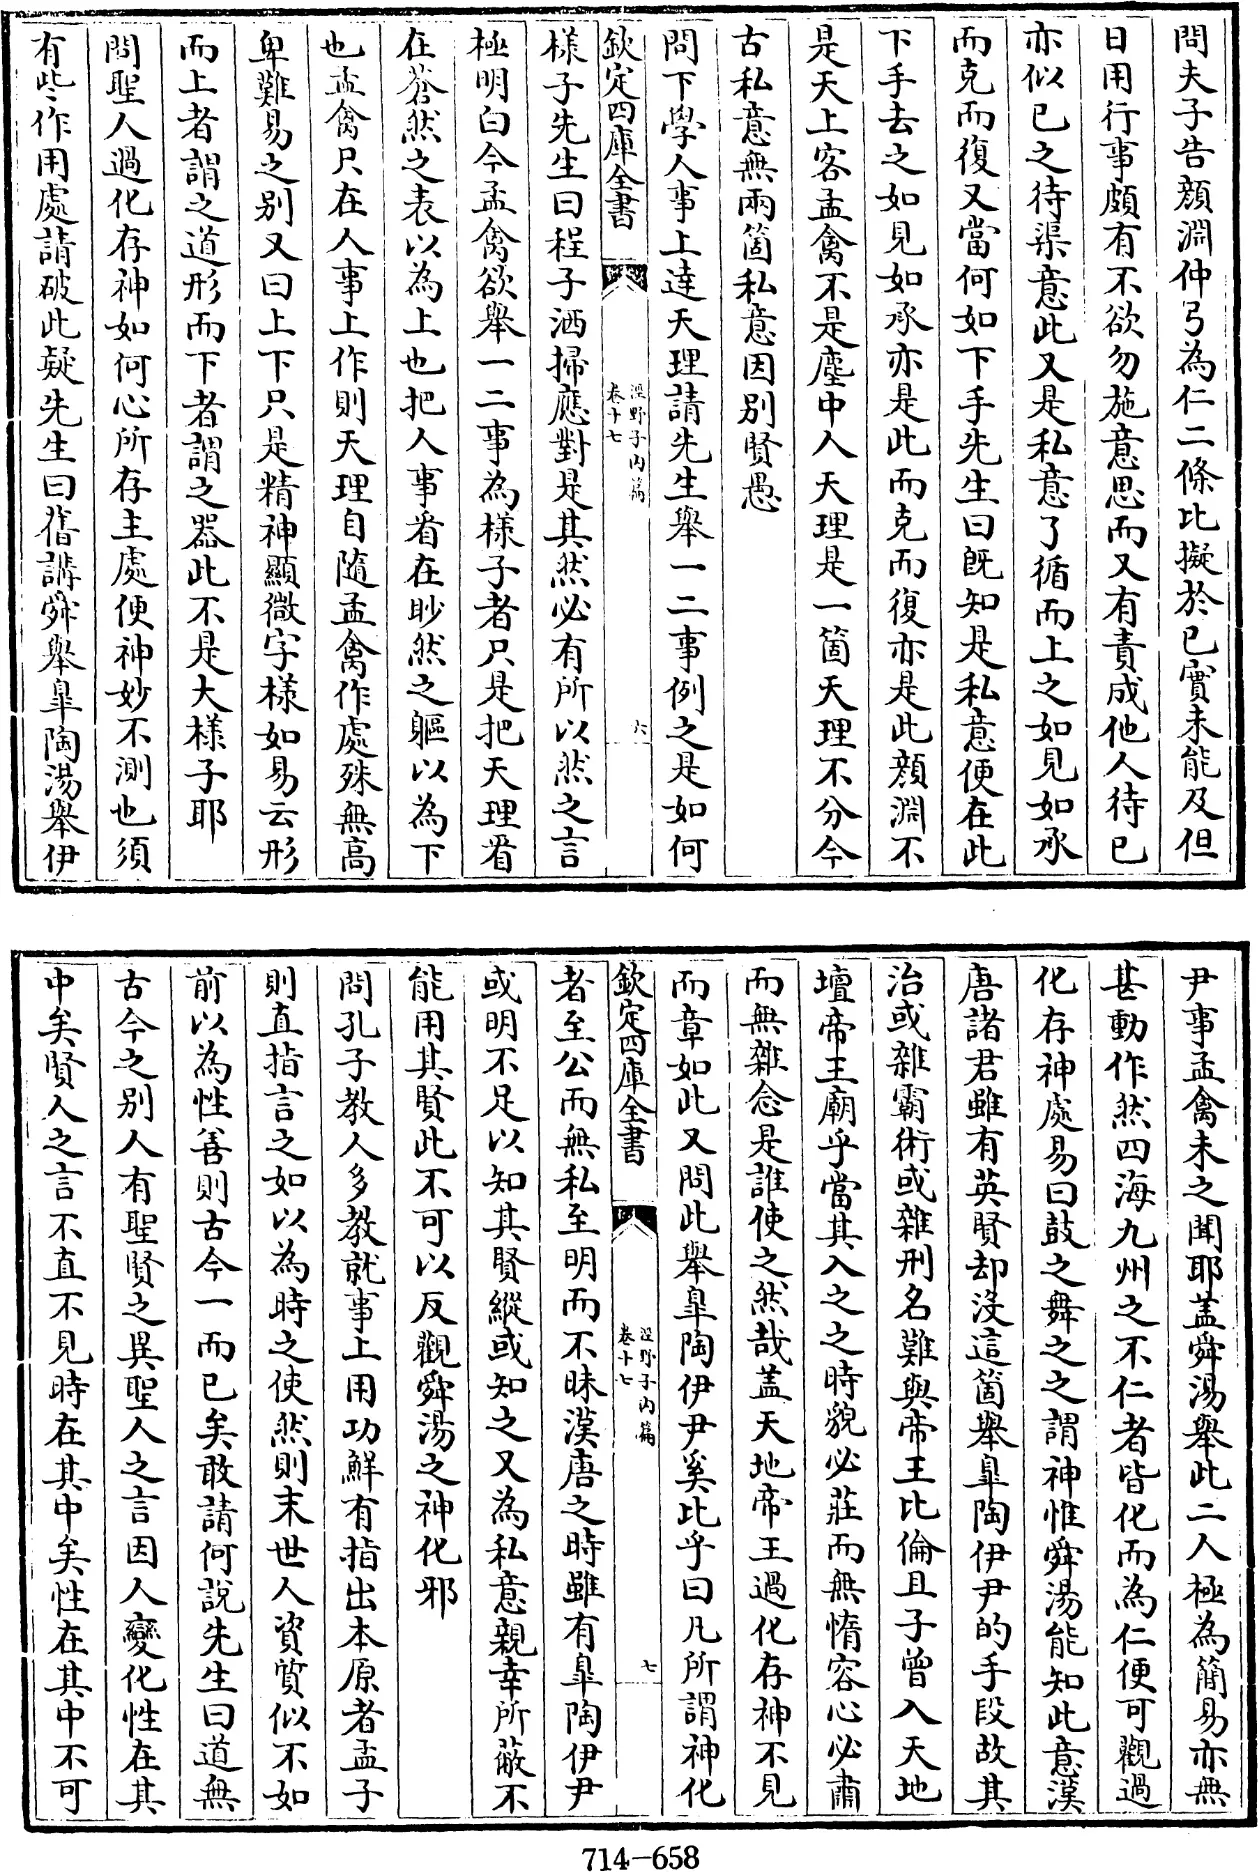 問夫子告顔淵仲弓為仁二條比擬於已實未能及但
日用行事頗有不欲勿施意思而又有責成他人待已
亦似已之待渠意此又是私意了循而上之如見如承
而克而復又當何如下手先生曰既知是私意便在此
下手去之如見如承亦是此而克而復亦是此顔淵不
是天上客孟禽不是塵中人天理是一箇天理不分今
古私意無兩箇私意因别賢愚
問下學人事上達天理請先生舉一二事例之是如何
欽定四庫全書
涇野子内篇
卷十七
六
樣子先生曰程子洒掃應對是其然必有所以然之言
極明白今孟禽欲舉一二事為樣子者只是把天理㸔
在蒼然之表以為上也把人事㸔在眇然之軀以為下
也孟禽只在人事上作則天理自隨孟禽作處殊無高
卑難易之别又曰上下只是精神顯微字樣如易云形
而上者謂之道形而下者謂之器此不是大樣子耶
問聖人過化存神如何心所存主處便神妙不測也須
有些作用處請破此疑先生曰舊講舜舉臯陶湯舉伊
尹事孟禽未之聞耶盖舜湯舉此二人極為簡易亦無
甚動作然四海九州之不仁者皆化而為仁便可觀過
化存神處易曰鼓之舞之之謂神惟舜湯能知此意漢
唐諸君雖有英賢却没這箇舉臯陶伊尹的手段故其
治或雜霸術或雜刑名難與帝王比倫且子曾入天地
壇帝王廟乎當其入之之時貌必莊而無惰容心必肅
而無雜念是誰使之然哉盖天地帝王過化存神不見
而章如此又問此舉臯陶伊尹奚比乎曰凡所謂神化
欽定四庫全書
涇野子内篇
卷十七
七
者至公而無私至明而不昧漢唐之時雖有臯陶伊尹
或明不足以知其賢縱或知之又為私意親幸所蔽不
能用其賢此不可以反觀舜湯之神化邪
問孔子教人多教就事上用功鮮有指出本原者孟子
則直指言之如以為時之使然則末世人資質似不如
前以為性善則古今一而已矣敢請何說先生曰道無
古今之别人有聖賢之異聖人之言因人變化性在其
中矣賢人之言不直不見時在其中矣性在其中不可
714-658